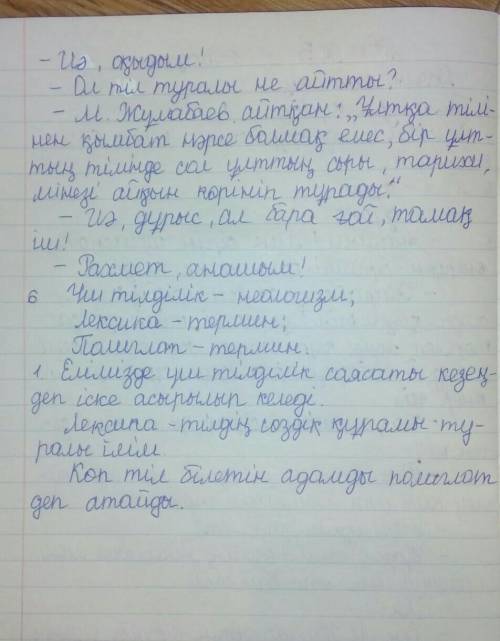 - Иә, оқыдым!
- Ол тіл туралы не айтты?
- М. Жұмабаев айтқан: „Ұлтқа тілі-
нен қымбат нәрсе болмақ емес, бір ұлт-
тың тілінде сол ұлттың сыры, тарихи,
мінезі айқын көрініп тұрады.“
- Иә, дұрыс, ал бара ғой, тамақ
іш!
- Рахмет, анашым!
6 Үш тілділік - неологизм;
Лексика - термин;
Полиглот - термин.
1. Елімізде үш тілділік саясаты кезең-
деп іске асырылып келеді.
Лексика - тілдің сөздік құрамы ту-
ралы ілім.
Көп тіл білетін адамды полиглот
деп атайды.